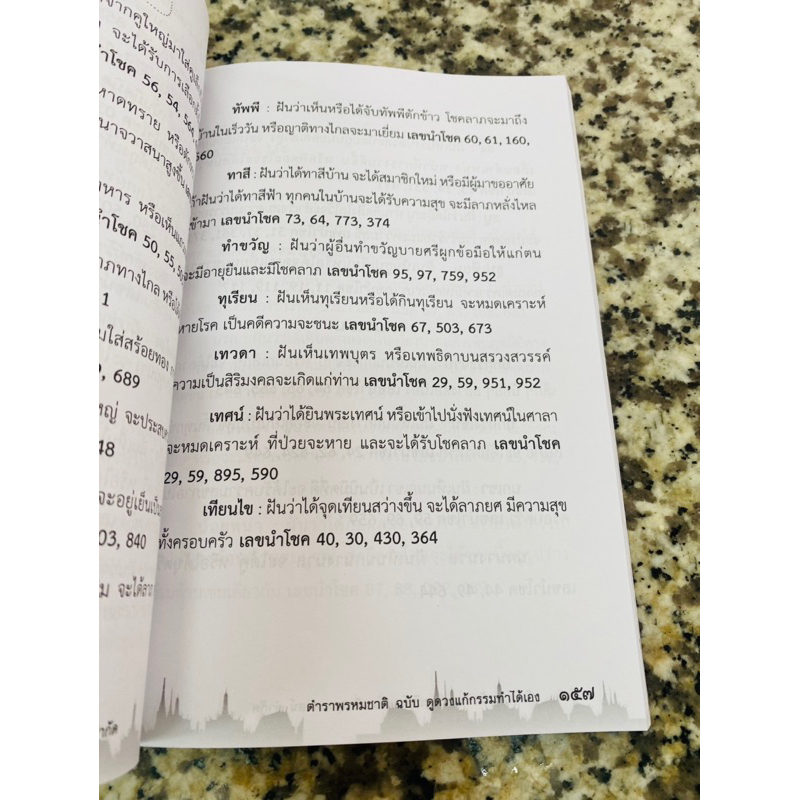 จากคูใหญ่มาใส่
จะได้รับการ
นำโชค 56, 54,
หาดทราย หรือ
นาจวาสนาสูงขึ้น
อาหาร หรือเห็น
นำโชค 50, 55,
ลาภทางไกล หรือ
1
มใส่สร้อยทอง
9, 689
ใหญ่ จะประส
48
จะอยู่เย็นเป็น
03, 840
ม จะได้ลา
ทัพพี : ฝันว่าเห็นหรือได้จับทัพพีตักข้าว โชคลาภจะมาถึง
บ้านในเร็ววัน หรือญาติทางไกลจะมาเยี่ยม เลขนำโชค 60, 61, 160,
660
ทาสี : ฝันว่าได้ทาสีบ้าน จะได้สมาชิกใหม่ หรือมีผู้มาขออาศัย
ถ้าฝันว่าได้ทาสีฟ้า ทุกคนในบ้านจะได้รับความสุข จะมีลาภหลั่งไหล
เข้ามา เลขนำโชค 73, 64, 773, 374
ทำขวัญ : ฝันว่าผู้อื่นทำขวัญบายศรีผูกข้อมือให้แก่ตน
จะมีอายุยืนและมีโชคลาภ เลขนำโชค 95, 97, 759, 952
ทุเรียน : ฝันเห็นทุเรียนหรือได้กินทุเรียน จะหมดเคราะห์
หายโรค เป็นคดีความจะชนะ เลขนำโชค 67, 503, 673
เทวดา : ฝันเห็นเทพบุตร หรือเทพธิดาบนสรวงสวรรค์
ความเป็นสิริมงคลจะเกิดแก่ท่าน เลขนำโชค 29, 59, 951, 952
เทศน์ : ฝันว่าได้ยินพระเทศน์ หรือเข้าไปนั่งฟังเทศน์ในศาลา
จะหมดเคราะห์ ที่ป่วยจะหาย และจะได้รับโชคลาภ เลขนำโชค
29, 59, 895, 590
เทียนไข : ฝันว่าได้จุดเทียนสว่างขึ้น จะได้ลาภยศ มีความสุข
ทั้งครอบครัว เลขนำโชค 40, 30, 430, 364
ตำราพรหมชาติ ฉบับ ดูดวงแก้กรรมทำได้เอง ๑๕๗